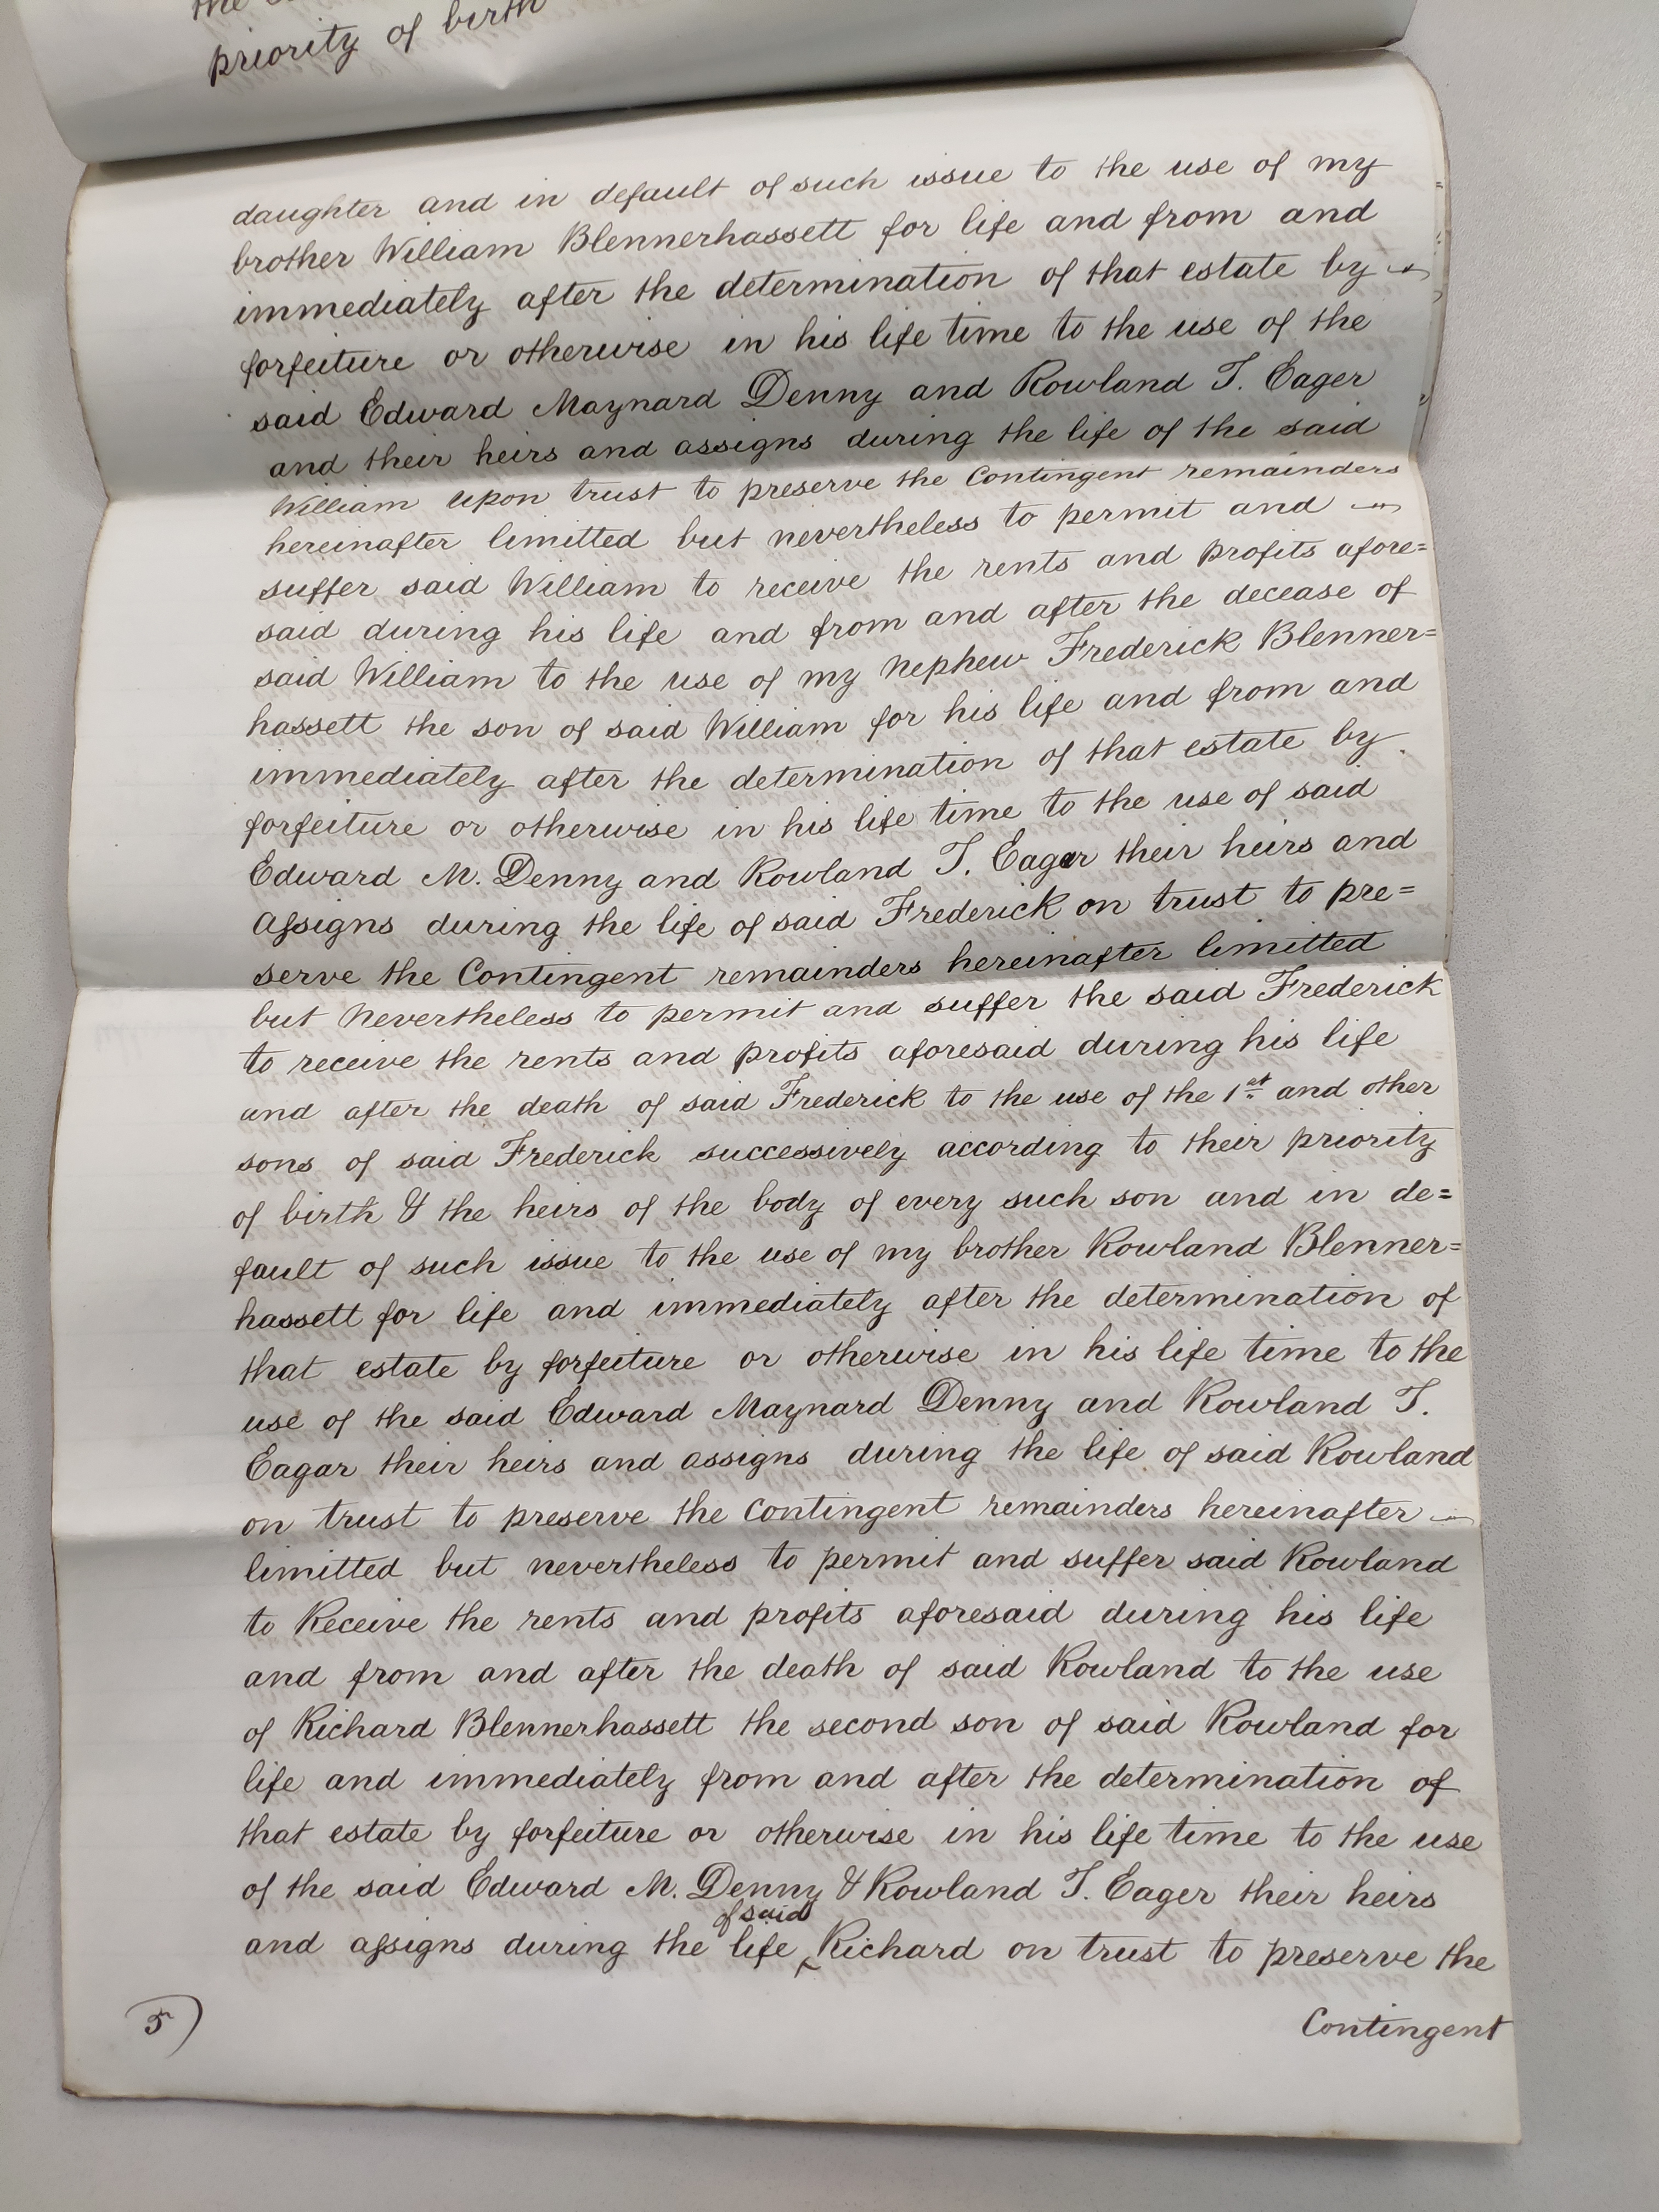 the
priority of birth
daughter and in default of such issue to the use of my
brother William Blennerhassett for life and from and
immediately after the determination of that estate by
forfeiture or otherwise in his life time to the use of the
said Edward Maynard Denny and Rowland T. Eager
and their heirs and assigns during the life of the said
William upon trust to preserve the Contingent remainders
hereinafter limitted but nevertheless to permit and
suffer said William to receive the rents and profits afore=
said during his life and from and after the decease of
said William to the use of my Nephew Frederick Blenner=
hassett the son of said William for his life and from and
immediately after the determination of that estate by
forfeiture or otherwise in his life time to the use of said
Edward M. Denny and Rowland T. Eager their heirs and
assigns during the life of said Frederick on trust to pre=
serve the Contingent remainders hereinafter limitted
but Nevertheless to permit and suffer the said Frederick
to receive the rents and profits aforesaid during his life
and after the death of said Frederick to the use of the 1st and other
sons of said Frederick successively according to their priority
of birth & the heirs of the body of every such son and in de=
fault of such issue to the use of my brother Rowland Blenner=
hassett for life and immediately after the determination of
that estate by forfeiture or otherwise in his life time to the
use of the said Edward Maynard Denny and Rowland T.
Eagar their heirs and assigns during the life of said Rowland
on trust to preserve the Contingent remainders hereinafter
limitted but nevertheless to permit and suffer said Rowland
to Receive the rents and profits aforesaid during his life
and from and after the death of said Rowland to the use
of Richard Blennerhassett the second son of said Rowland for
life and immediately from and after the determination of
that estate by forfeiture or otherwise in his life time to the use
of the said Edward M. Denny & Rowland T. Eager their heirs
of said
and assigns during the life Richard on trust to preserve the
5)
Contingent